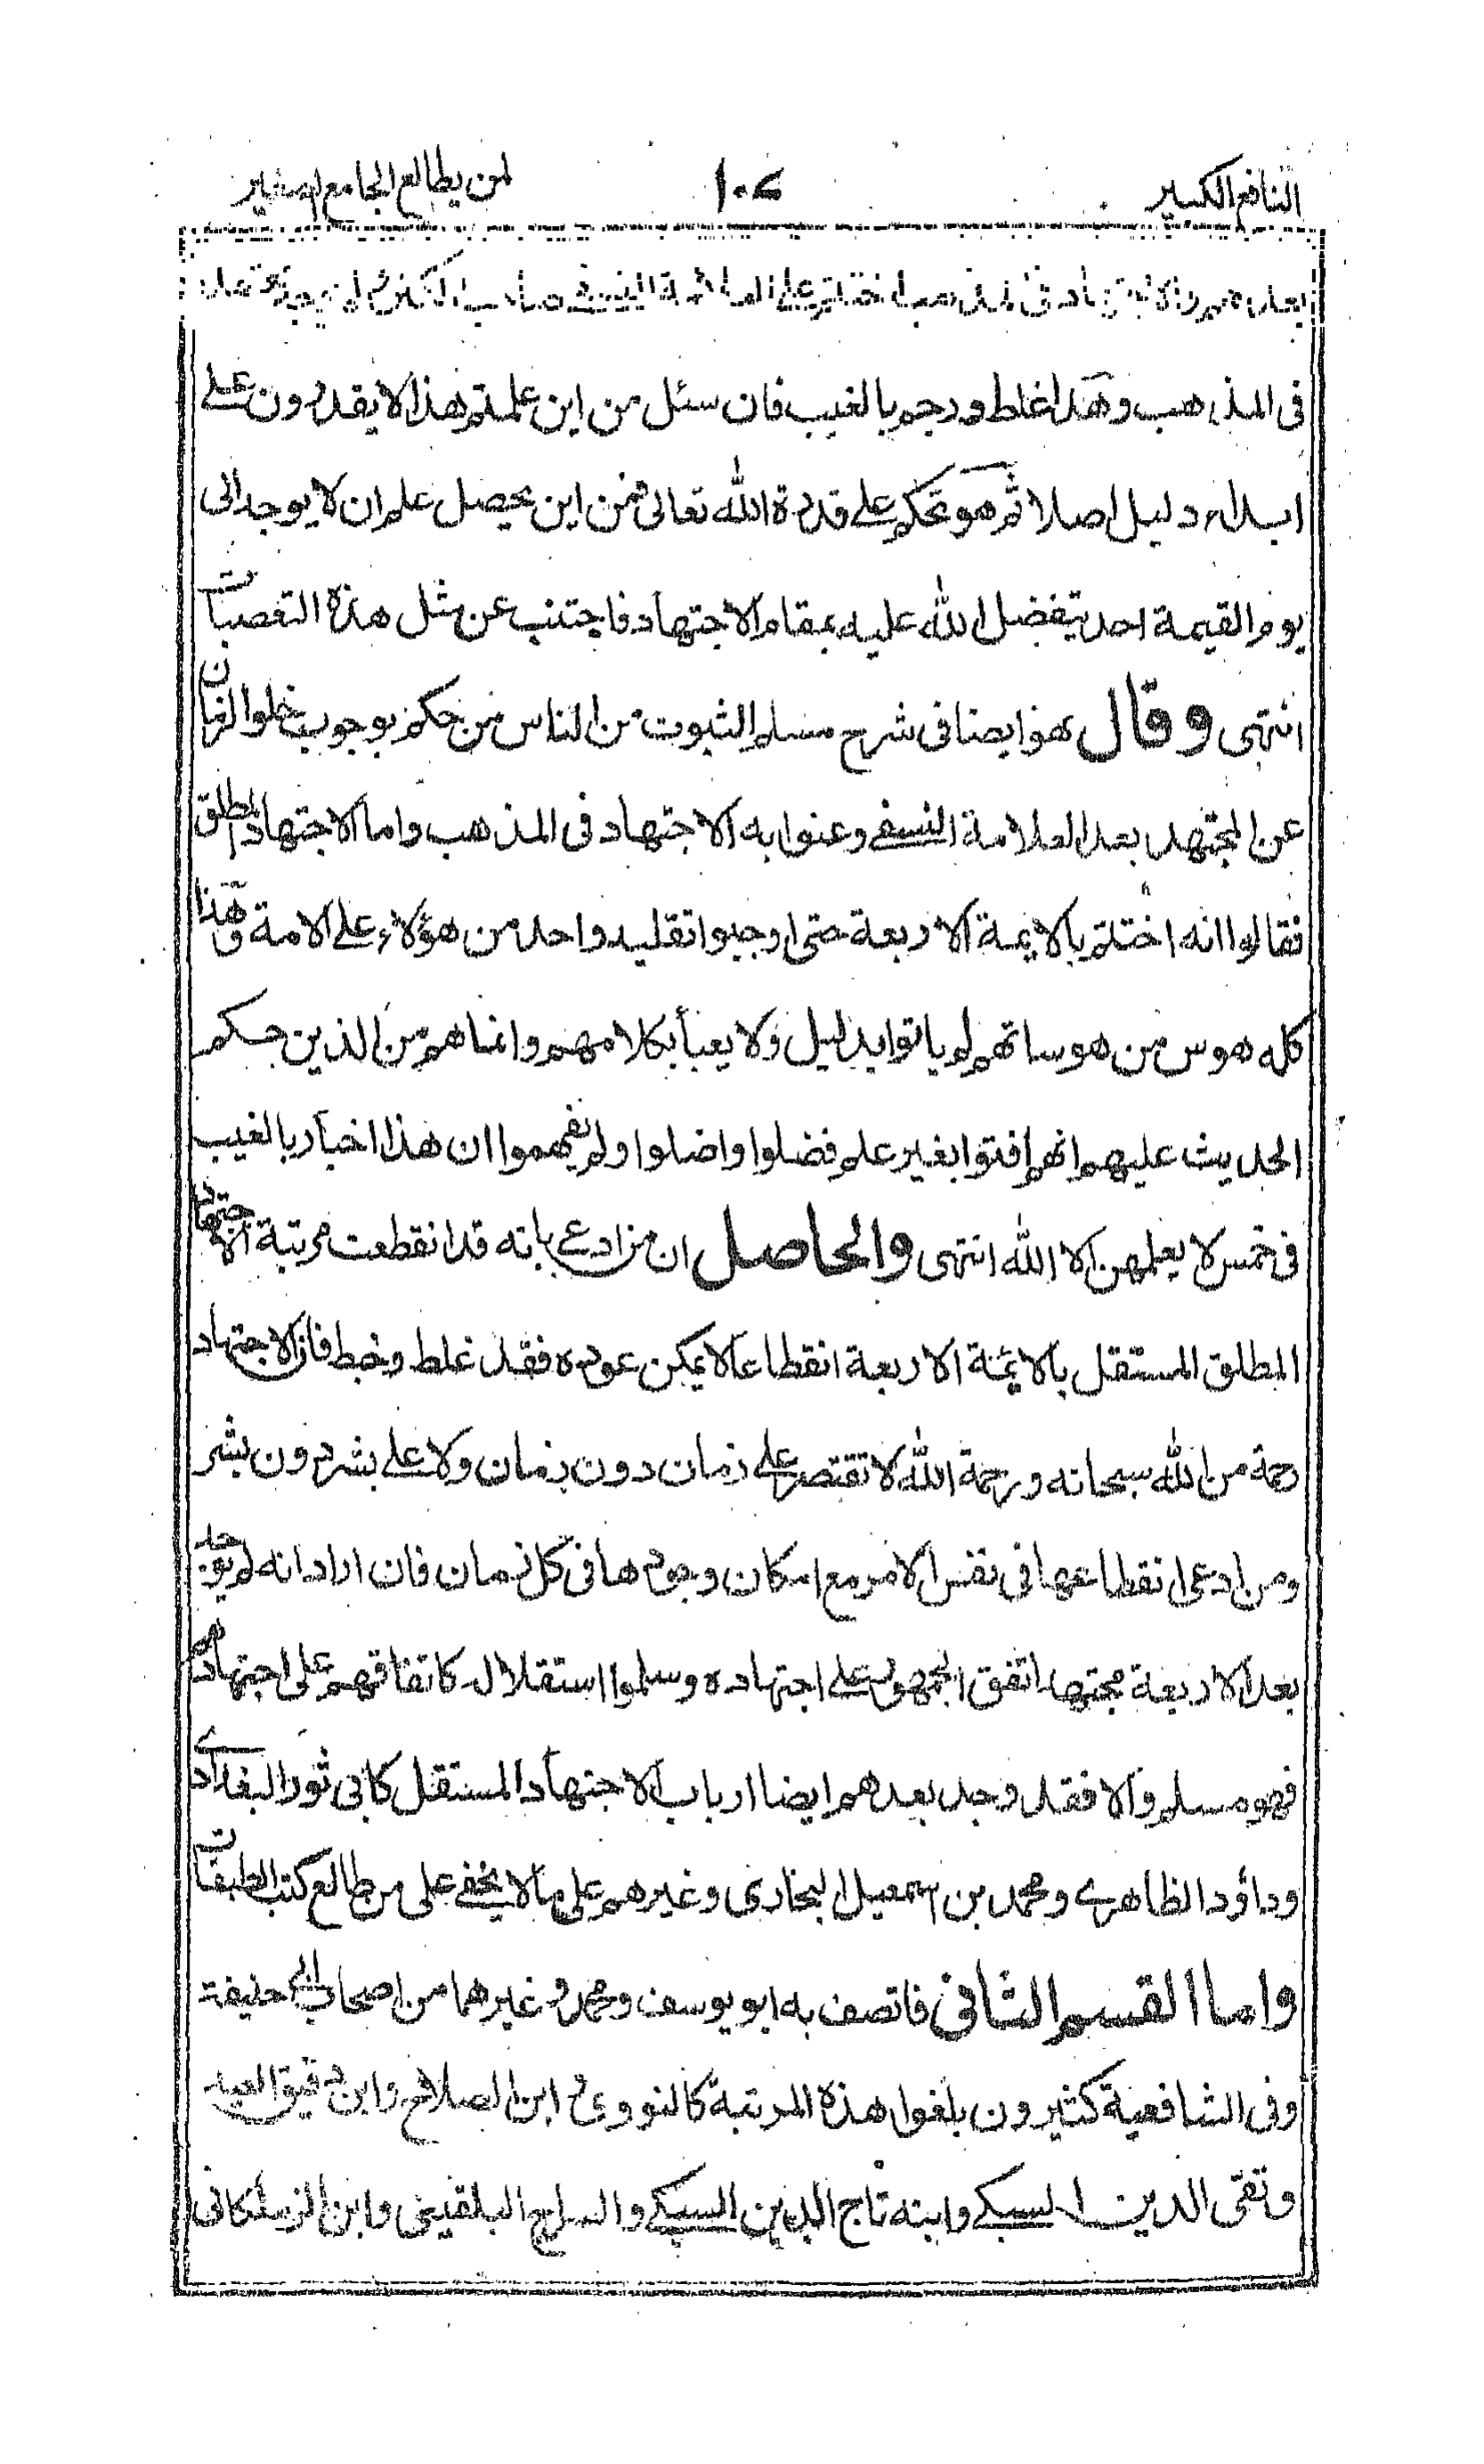 النافع الكبير ١٠٤ لمن يطالع الجامع الصغير
على العلامة النسفى صاحب الكنز
فى المذهب وهذا غلط ورجم بالغيب فان سئل من اين علمتم هذا لا يقدرون على
ابداء دليل اصلا ثم هو تحكم على قدرة الله تعالى فمن اين يحصل علم ان لا يوجد الى
يوم القيمة احد يتفضل الله عليه بمقام الاجتهاد فاجتنب عن مثل هذه التعصبات
انتهى وقال هو ايضا فى شرح مسلم الثبوت من الناس من حكم بوجوب خلو الزمان
عن المجتهد بعد العلامة النسفى وعنوا به الاجتهاد فى المذهب واما الاجتهاد المطلق
فقالوا انه اختتم بالايمة الاربعة حتى اوجبوا تقليد واحد من هؤلاء على الامة وهذا
كله هوس من هوساتهم لم ياتوا بدليل ولا يعبأ بكلامهم وانما هم من الذين حكم
الحديث عليهم انهم افتوا بغير علم فضلوا واضلوا ولم يفهموا ان هذا اخبار بالغيب
فى خمس لا يعلمهن الا الله انتهى والحاصل ان من ادعى بانه قد انقطعت مرتبة الاجتهاد
المطلق المستقل بالائمة الاربعة انقطاعا لا يمكن عوده فقد غلط وخبط فان الاجتهاد
رحمة من الله سبحانه ورحمة الله لا تقتصر على زمان دون زمان ولا على بشر دون بشر
ومن ادعى انقطاعها فى نفس الامر مع امكان وجودها فى كل زمان فان اراد انه لم يوجد
بعد الاربعة مجتهد اتفق الجمهور على اجتهاده وسلموا استقلاله كاتفاقهم على اجتهادهم
فهو مسلم والا فقد وجد بعدهم ايضا ارباب الاجتهاد المستقل كابى ثور البغدادى
وداؤد الظاهرى ومحمد بن اسمعيل البخارى وغيرهم على ما لا يخفى على من طالع كتب الطبقات
واما القسم الثانى فاتصف به ابو يوسف ومحمد وغيرهما من اصحاب ابى حنيفة
وفى الشافعية كثيرون بلغوا هذه المرتبة كالنووى و ابن الصلاح وابن دقيق العيد
وتقى الدين السبكى وابنه تاج الدين السبكى والسراج البلقينى وابن الزملكانى